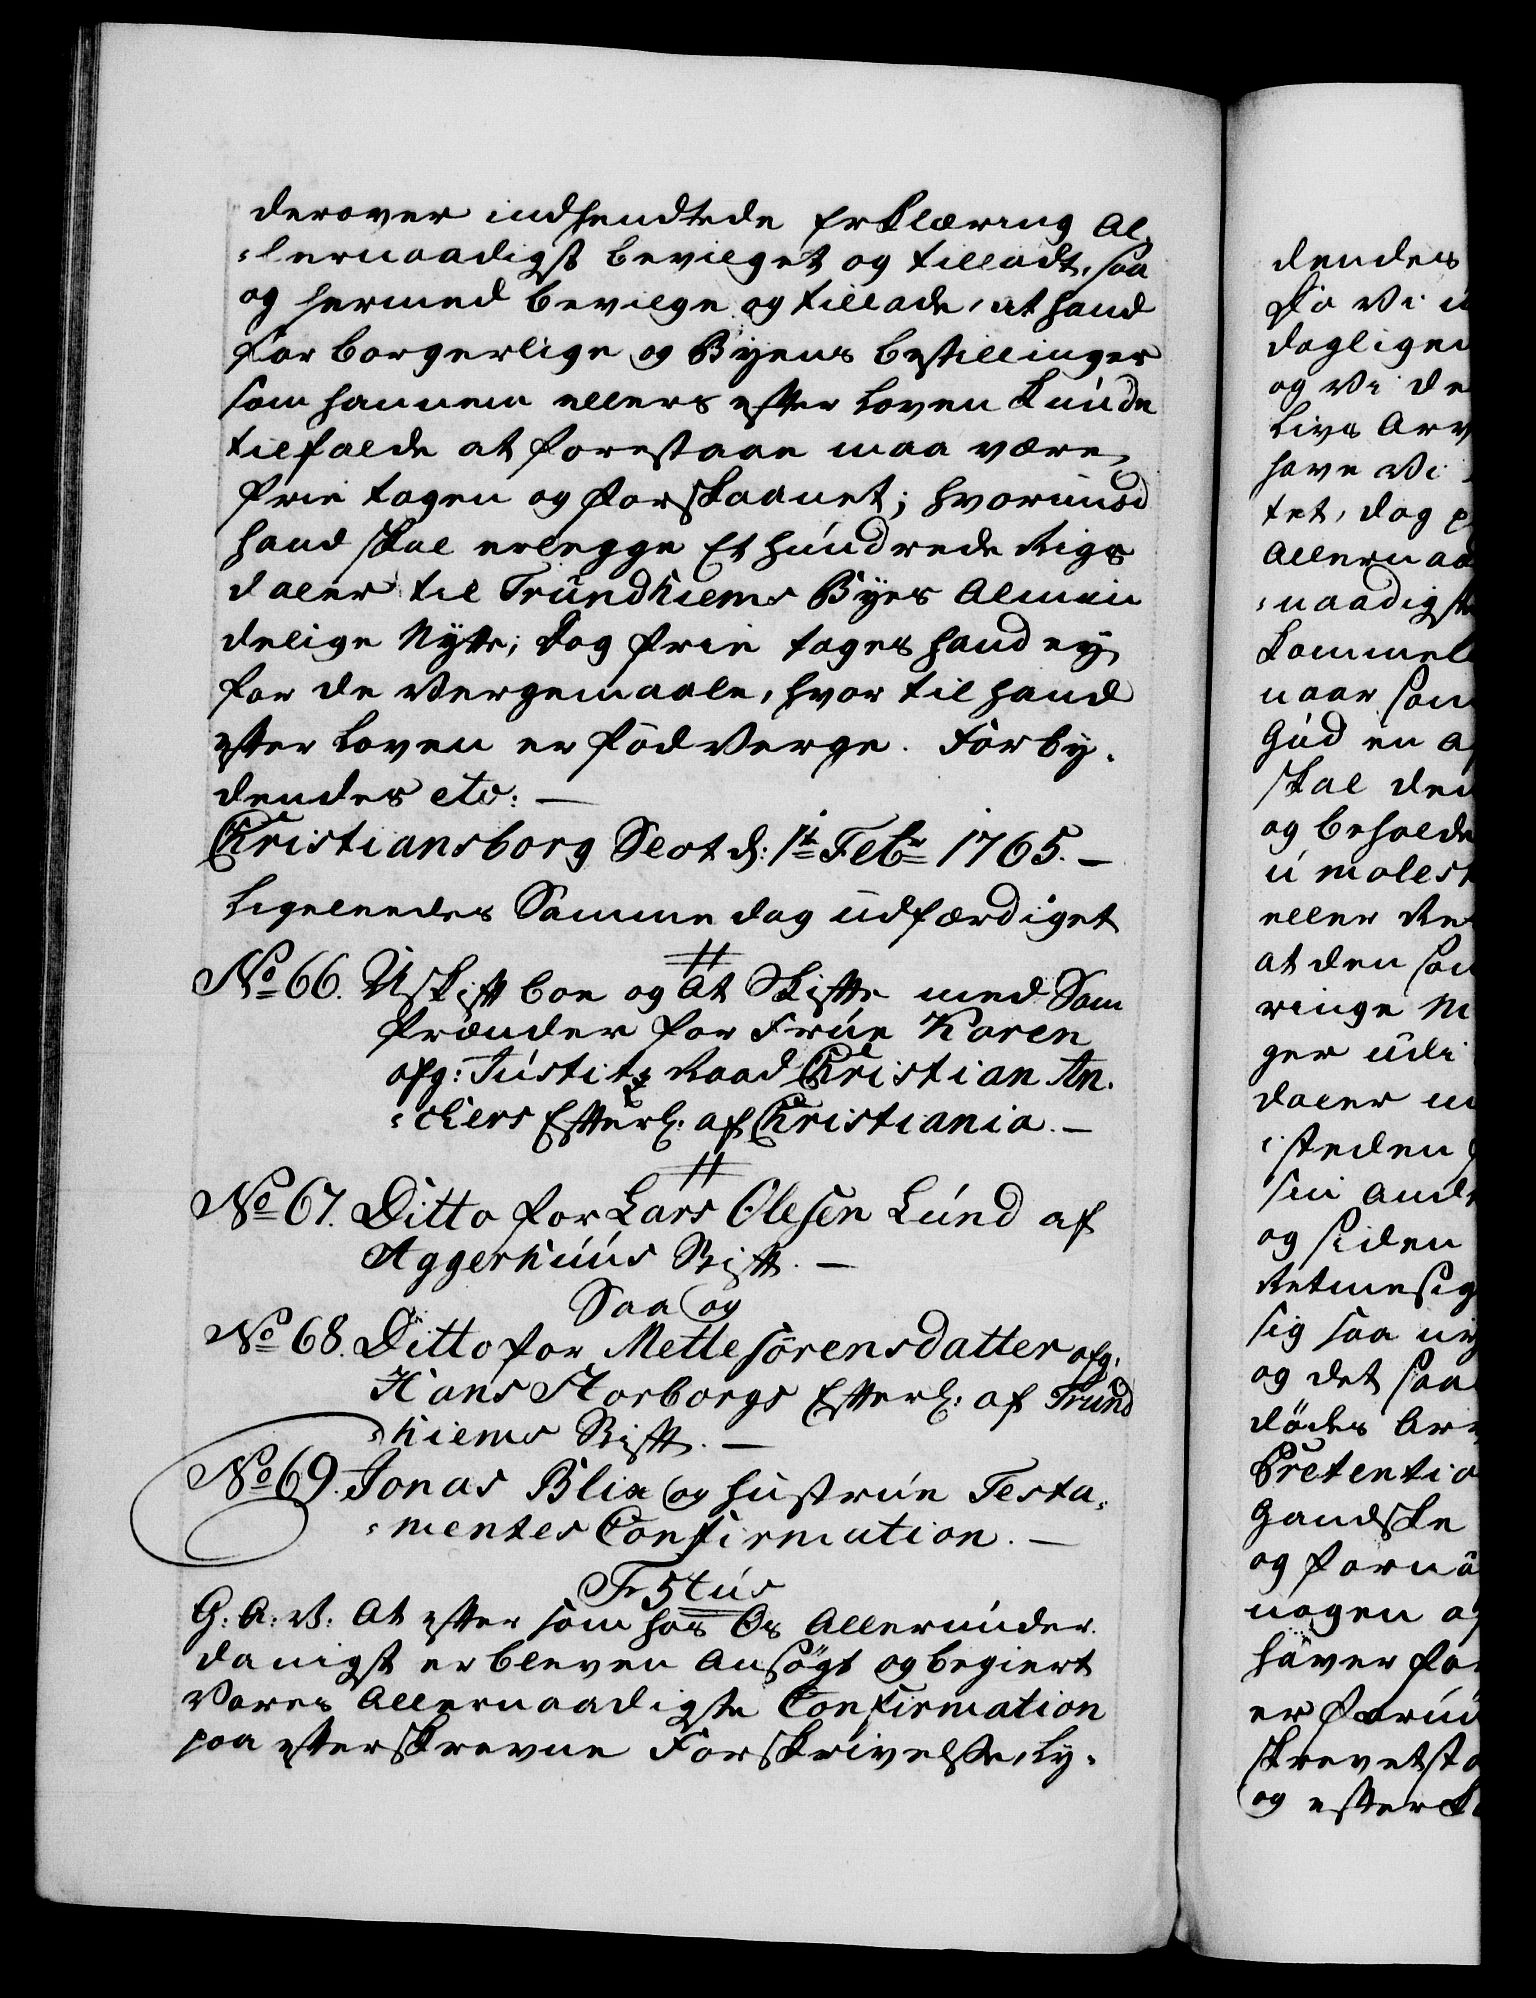 derover indsendtede Erklæring Al-
lernaadigst bevilget og tilladt, saa
og hermed bevilge og tillade, at hand
for borgerlige og Byens bestillinger
som hannem ellers efter Loven kunde
tilfalde at forestaae maa være
frie tagen og forskaanet; hvorimod
hand skal erlegge Et hundrede Rigs
daler til Trundhiems Byes Almin
delige Nytte; dog frie tages hand ey
for de Vergemaale, hvor til hand
efter Loven er fød Verge. Forby-
dendes etc: —
Christiansborg Slot d: 1te Febr 1765. —
Ligeleedes Samme dag udfærdiget
No 66. Uskift boe og at Skifte med Sam
frænder for Frue Karen
afg: Justitz Raad Christian An-
chers Efterl: af Christiania. —
No 67. Ditto for Lars Olesen Lund af
Aggerhuus Stift. —
Saa og
No 68. Ditto for Mette Sörensdatter afg:
Hans Storborgs Efterl: af Trund
hiems Stift. —
No 69. Jonas Blix og hustrue Testa-
mentes Confirmation. —
F 5tus
G: A: V: At efter som hos Os Allerunder-
danigst er bleven Ansögt og begiert
Vores Allernaadigste Confirmation
paa efterskrevne Forskrivelse, Ly-
dendes
Da Vi
daglige
og Vi
Livs Arv
have Vi
tet, dog
Allernaa
naadigst
kommel
naar som
Gud en
skal den
og beholde
u molest
eller
at den
ringe
ger udi
daler
isteden
sin
og siden
Retmesig
sig saa
og det saa
dödes
Prætentio
Gandske
og
nogen
haver for
er
skrevet
og efter